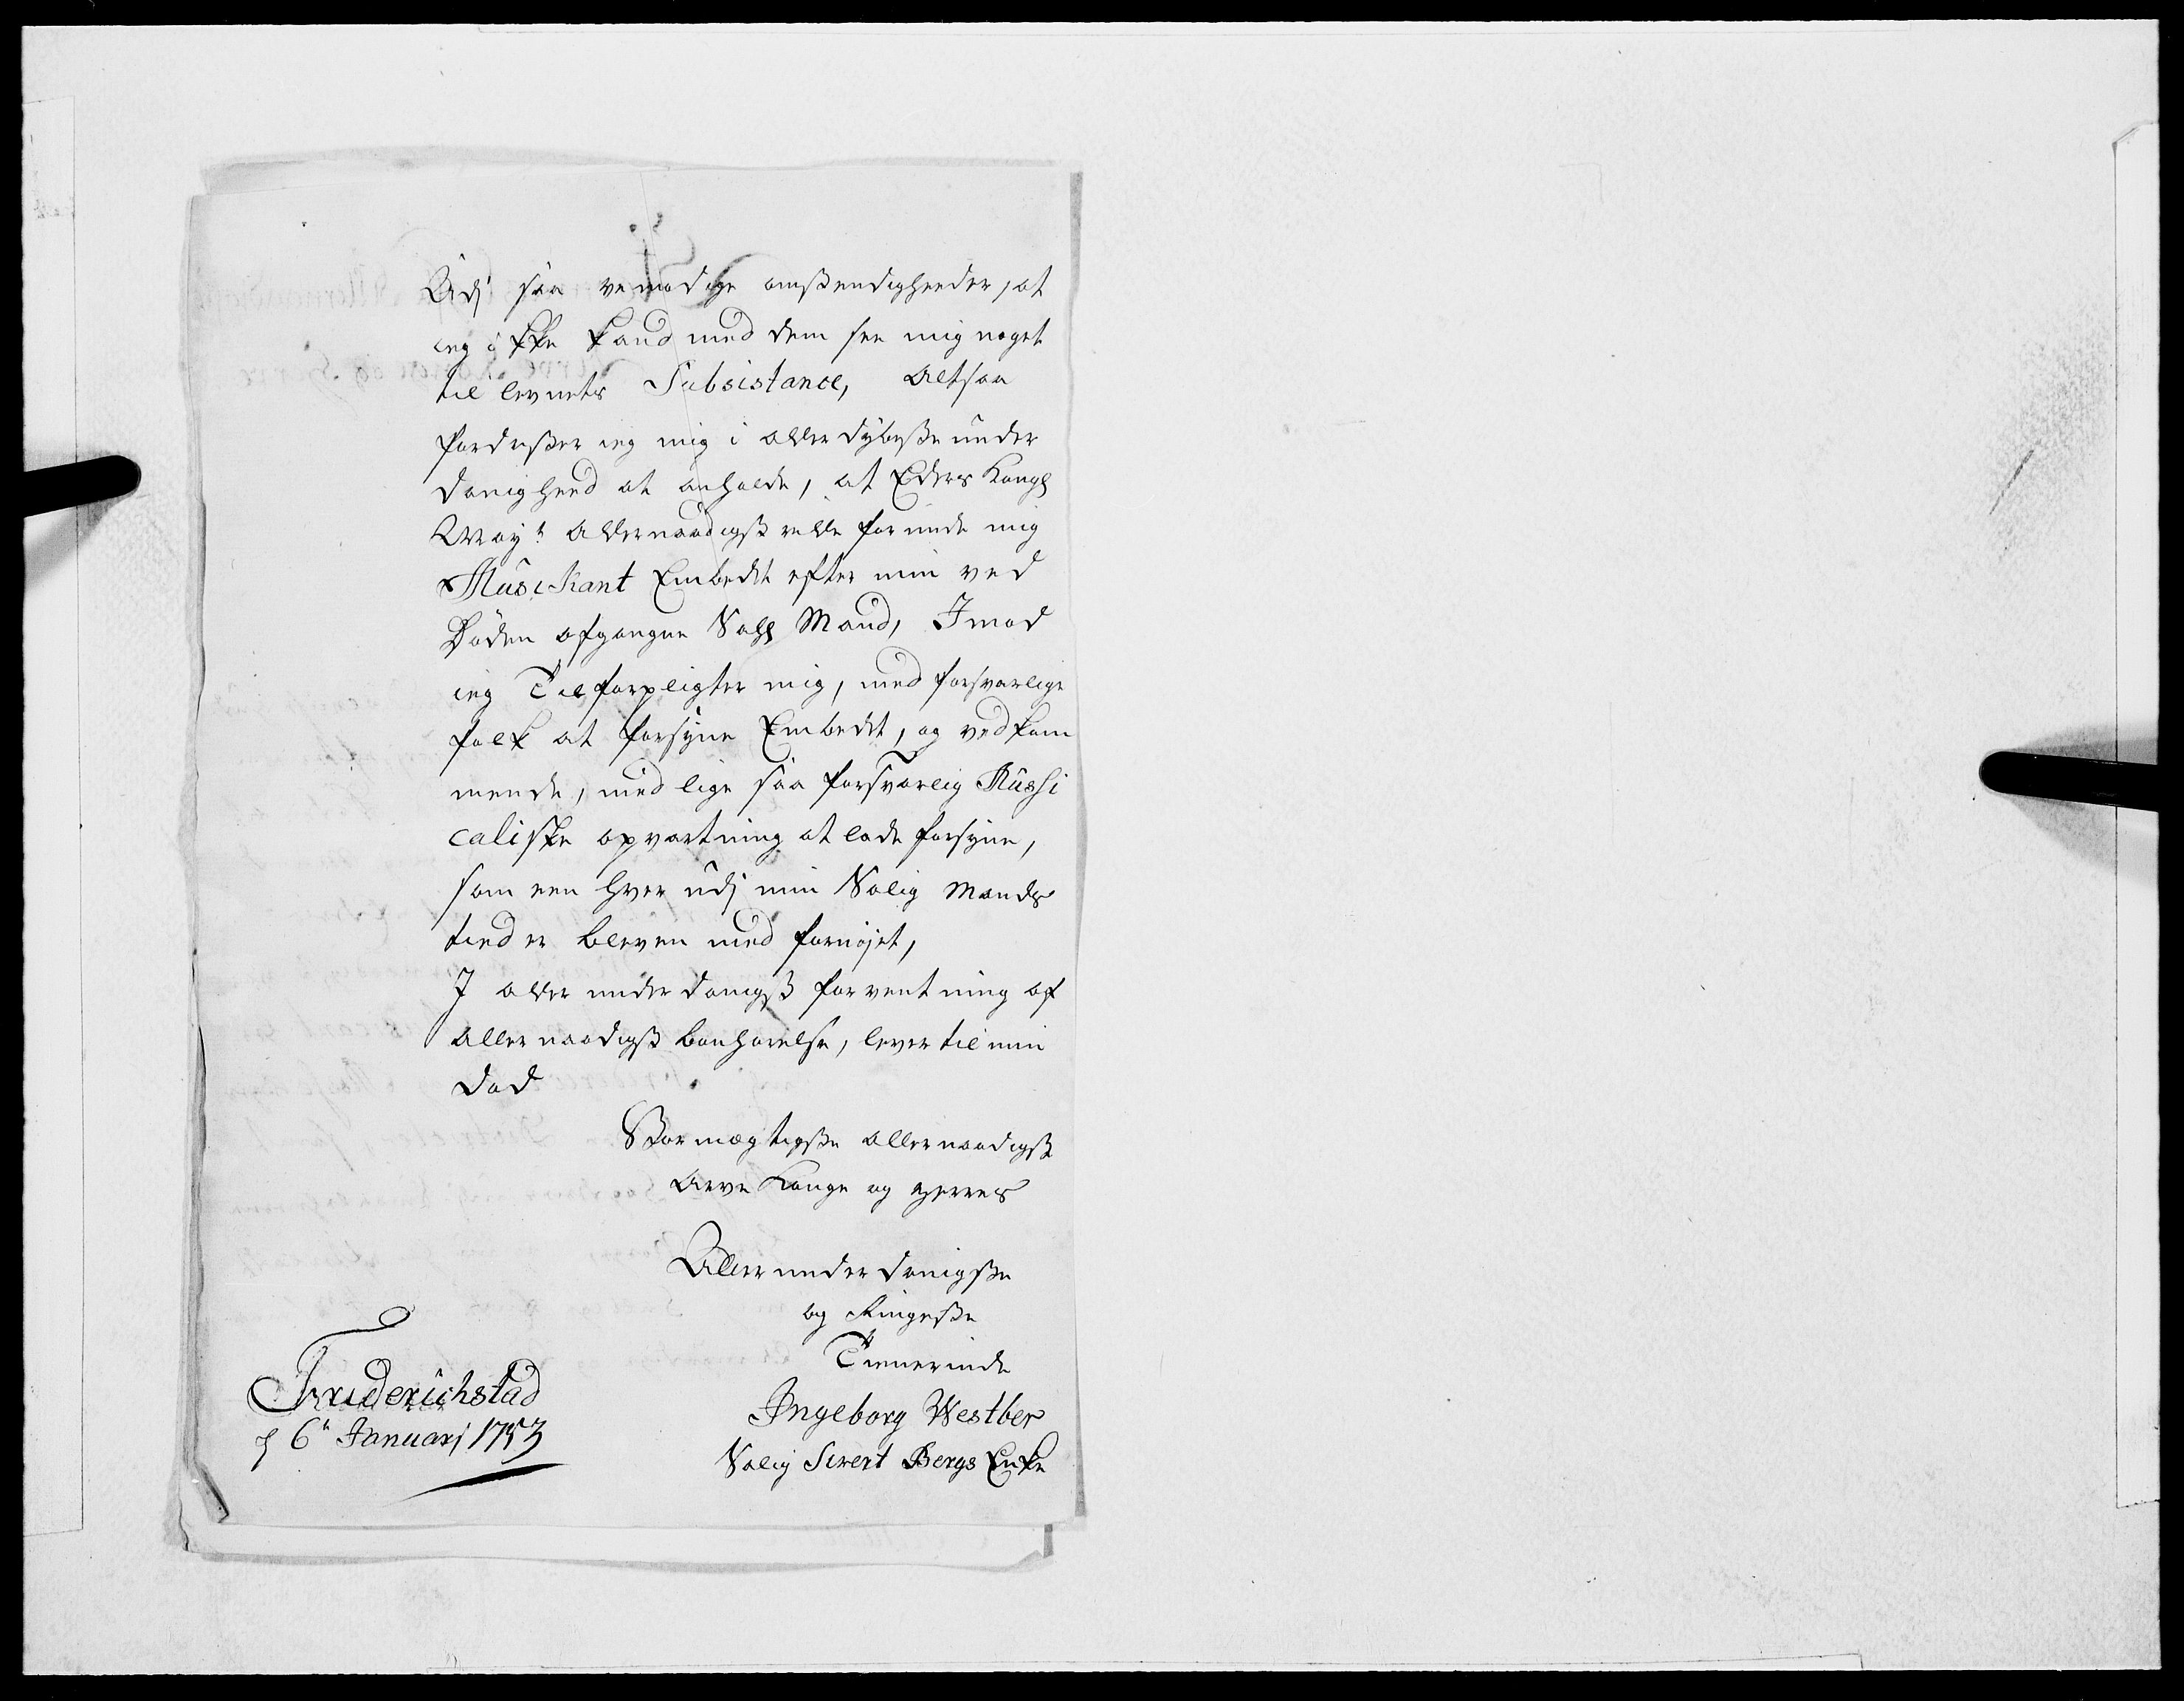 Udj saa vemodige omstendigheeder, at
ieg i kke Kand med dem see mig noget
til levnets Subsistance, altsaa
fordrister ieg mig i aller dybeste under
danigheed at anholde, at Eders Kongl
May.t Allernaadigst wille forunde mig
Musickant Embedet efter min ved
Döden afgangne Sahl Mand, Imod
ieg Tilforpligter mig, med forsvarlige
folk at forsyne Embedet, og vedkom
mende, med lige saa forsvarlig Mussi
caliske opvartning at lade forsyne,
som een hver udj min Salig Mands
tied er bleven med fornöjet,
I aller under danigst forventning af
allernaadigst bönhörelse, lever til min
död
Stormægtigste allernaadigst
Arve Konge og Herres
Aller under danigste
og Ringeste
Tienerinde
Ingeborg Westber
Salig Siwert Bergs Enke
Friderichstad
d 6.t Januarj 1753